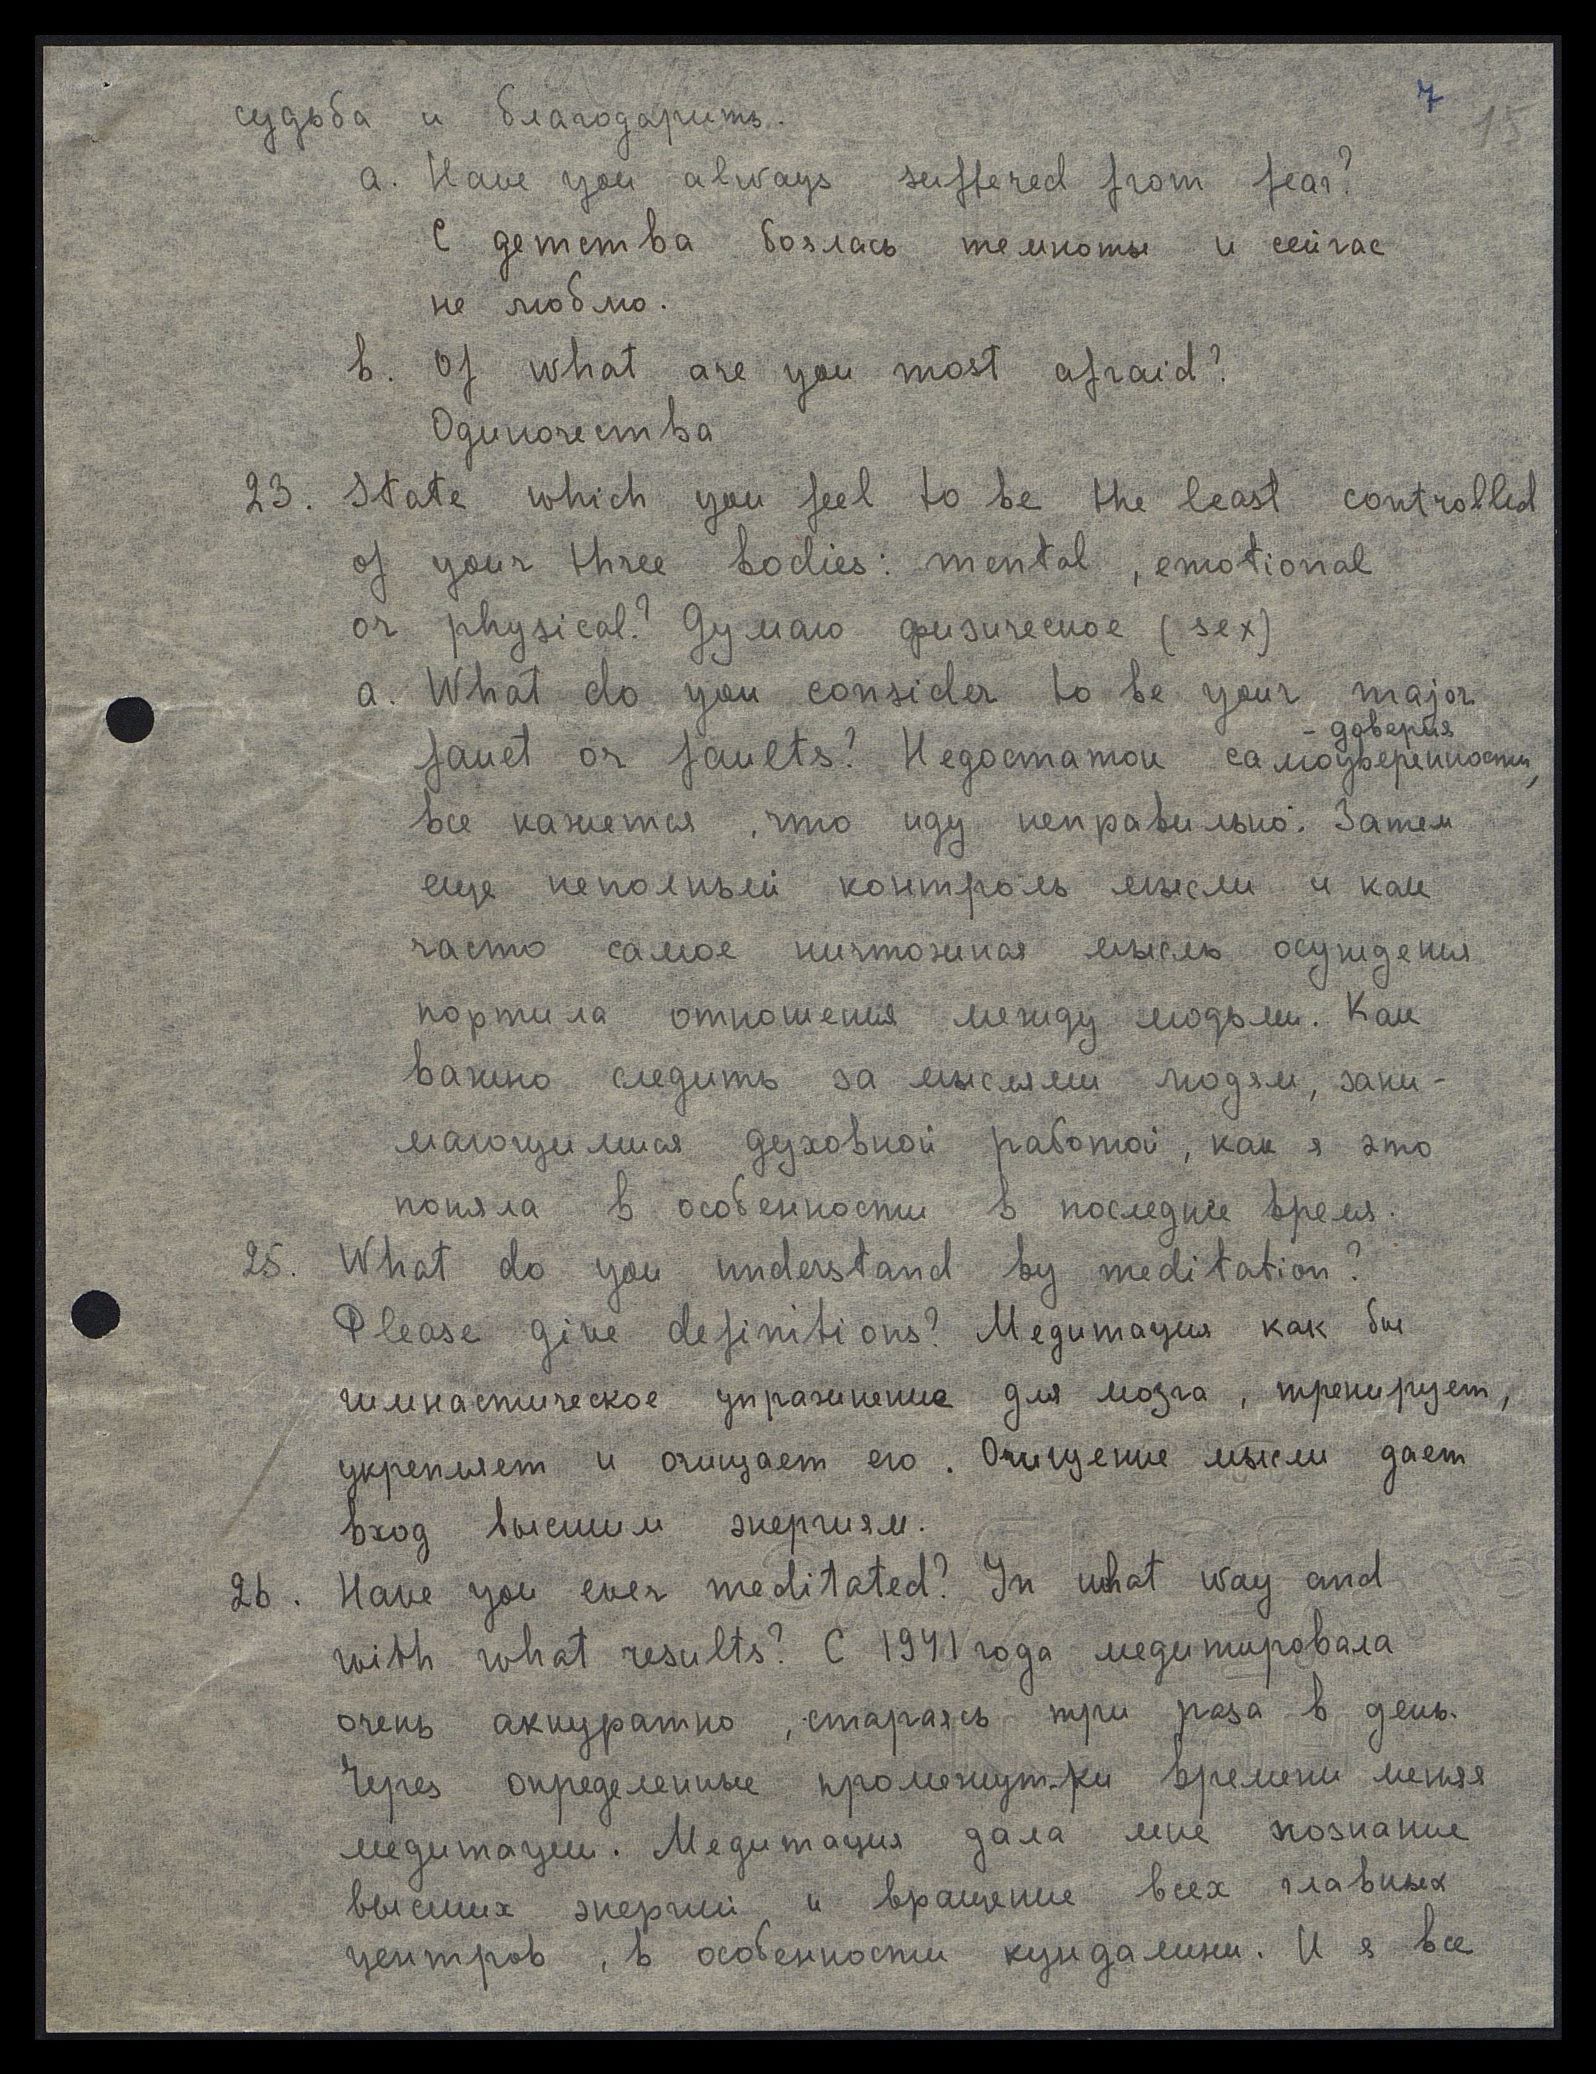 7 15
судьба и благодарить.
a. Have you always suffered from fear?
С детства боялась темноты и сейчас
не люблю.
b. Of what are you most afraid?
Одиночества
23. State which you feel to be the least controlled
of your three bodies: mental, emotional
or physical? Думаю физическое (sex)
a. What do you consider to be your major
- доверия
fauet or faults? Недостаток самоуверенности,
все кажется, что иду неправильно. Затем
еще неполный контроль мысли и как
часто самое ничтожная мысль осуждения
портила отношения между людьми. Как
важно следить за мыслями людям, зани-
мающимися духовной работой, как я это
поняла в особенности в последнее время.
25. What do you understand by meditation?
Please give definitions? Медитация как бы
гимнастическое упражнение для мозга, тренирует,
укрепляет и очищает его. Очищение мысли дает
вход высшим энергиям.
26. Have you ever meditated? In what way and
with what results? С 1941 года медитировала
очень аккуратно, стараясь три раза в день.
Через определенные промежутки времени меняя
медитации. Медитация дала мне познание
высших энергий и вращение всех главных
центров, в особенности кундалини. И я все